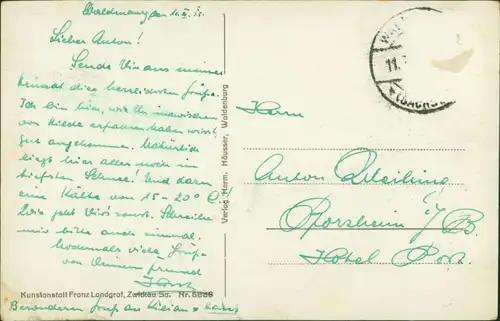 Waldenburg, den 11. II. 
Lieber Anton!
Sende Dir aus meiner
Heimat die herzlichsten Grüße.
Ich bin hier, wie Du inzwischen
von Hilde erfahren haben wirst,
gut angekommen. Natürlich
liegt hier alles noch im
tiefsten Schnee! Und dazu
eine Kälte von 15-20° C!
Wie geht Dir's sonst. Schreibe
mir bitte auch einmal.
Nochmals viele Grüße
von Deinem Freund
Horst
Kunstanstalt Franz Landgraf, Zwickau Sa. Nr. 6888
Besonderen Gruß an Kilian u. Hans
Verlag Herm. Häusser, Waldenburg
WAL
11.
(SACHS
Herrn
Anton
Pforzheim i/B.
Hotel Post